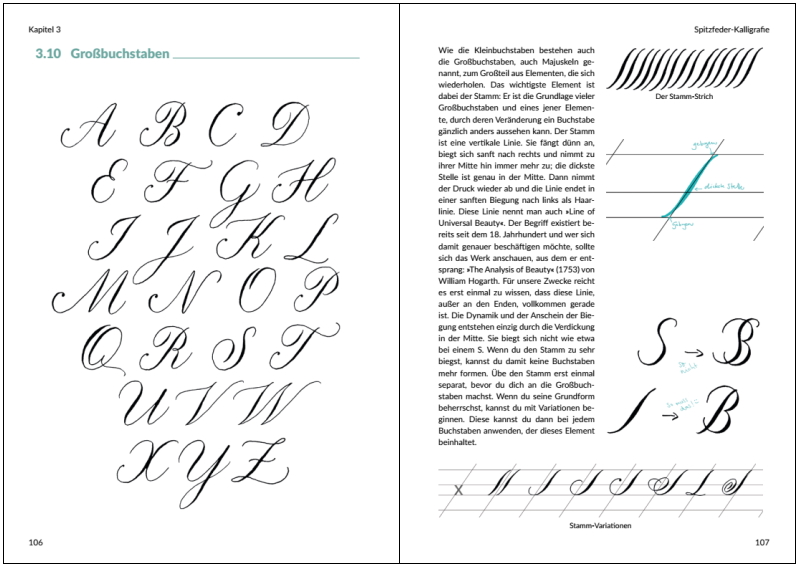 Kapitel 3
3.10 Großbuchstaben
A B C D
E F G H
I J K L
M N O P
Q R S T
U V W
X Y Z
106
Spitzfeder-Kalligrafie
Wie die Kleinbuchstaben bestehen auch
die Großbuchstaben, auch Majuskeln ge-
nannt, zum Großteil aus Elementen, die sich
wiederholen. Das wichtigste Element ist
dabei der Stamm: Er ist die Grundlage vieler
Großbuchstaben und eines jener Elemen-
te, durch deren Veränderung ein Buchstabe
gänzlich anders aussehen kann. Der Stamm
ist eine vertikale Linie. Sie fängt dünn an,
biegt sich sanft nach rechts und nimmt zu
ihrer Mitte hin immer mehr zu; die dickste
Stelle ist genau in der Mitte. Dann nimmt
der Druck wieder ab und die Linie endet in
einer sanften Biegung nach links als Haar-
linie. Diese Linie nennt man auch »Line of
Universal Beauty«. Der Begriff existiert be-
reits seit dem 18. Jahrhundert und wer sich
damit genauer beschäftigen möchte, sollte
sich das Werk anschauen, aus dem er ent-
sprang: »The Analysis of Beauty« (1753) von
William Hogarth. Für unsere Zwecke reicht
es erst einmal zu wissen, dass diese Linie,
außer an den Enden, vollkommen gerade
ist. Die Dynamik und der Anschein der Bie-
gung entstehen einzig durch die Verdickung
in der Mitte. Sie biegt sich nicht wie etwa
bei einem S. Wenn du den Stamm zu sehr
biegst, kannst du damit keine Buchstaben
mehr formen. Übe den Stamm erst einmal
separat, bevor du dich an die Großbuch-
staben machst. Wenn du seine Grundform
beherrschst, kannst du mit Variationen be-
ginnen. Diese kannst du dann bei jedem
Buchstaben anwenden, der dieses Element
beinhaltet.
Der Stamm-Strich
gebogen
dickste Stelle
gebogen
S → B
so nicht
→ B
x
Stamm-Variationen
107